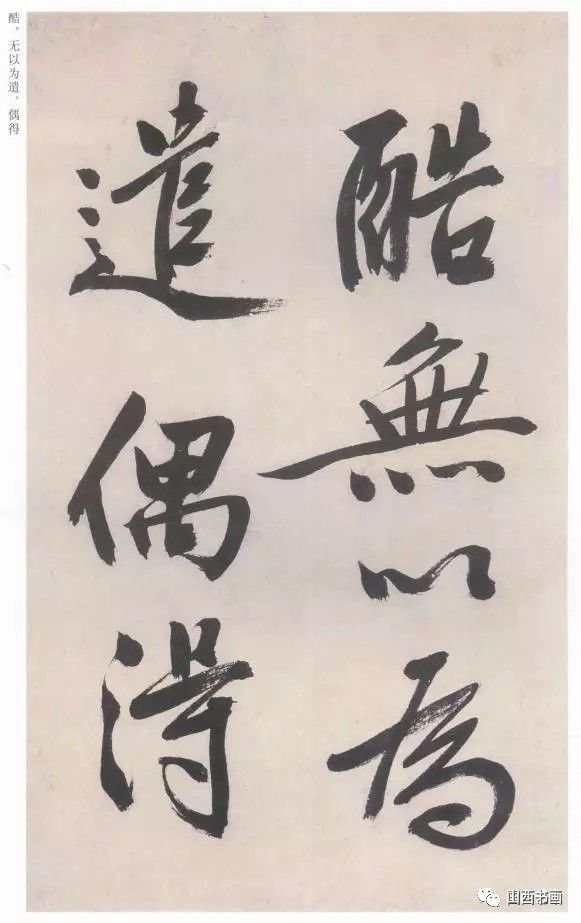 酷無以為
遣偶得
酷。无以为遣。偶得
国西书画